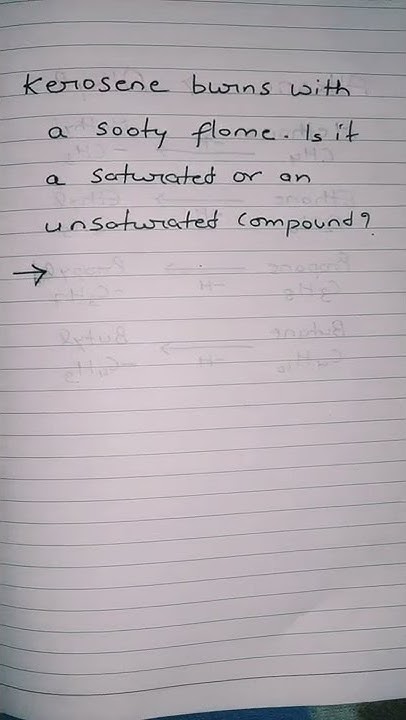 Kerosene burns with
a sooty flome. Is it
a saturated or an
unsaturated compound?
→